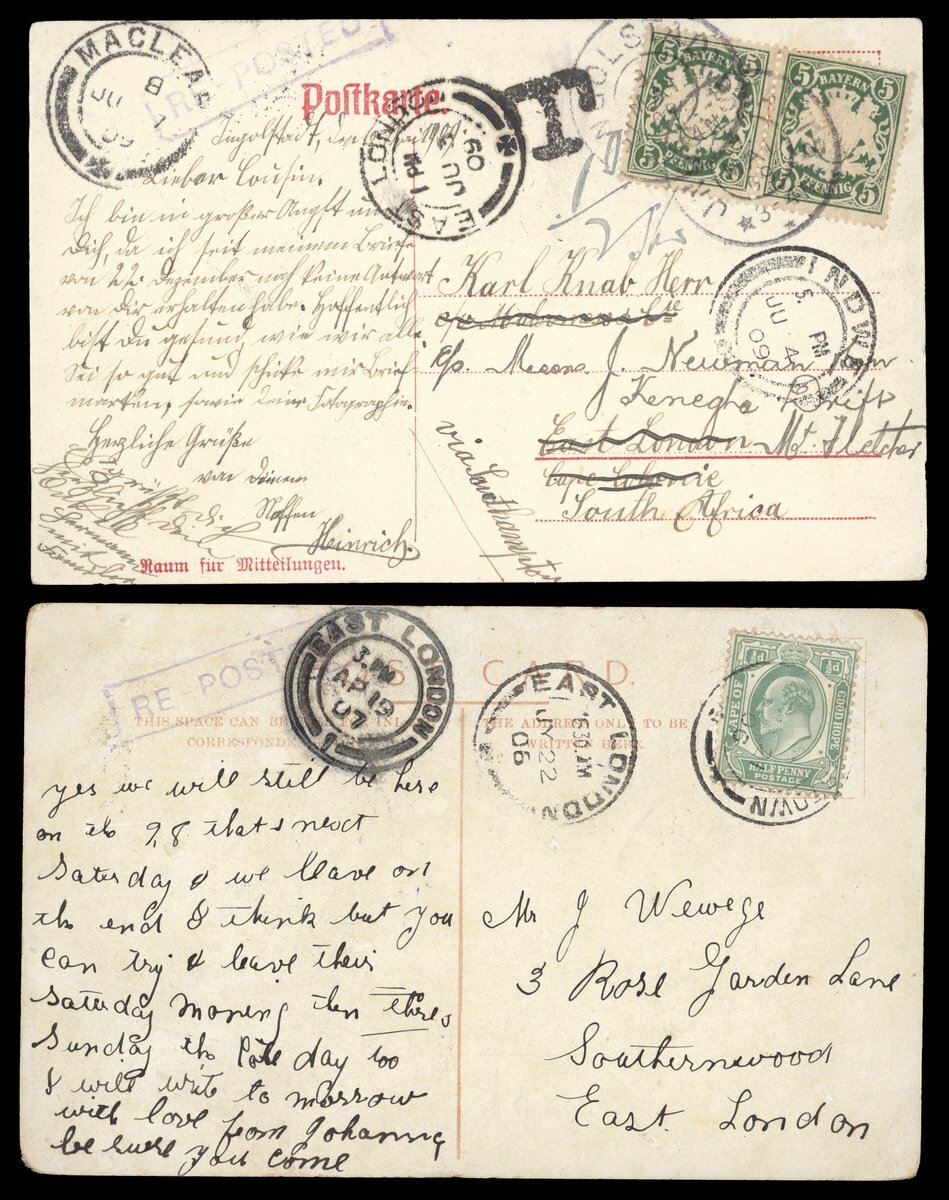 MACLEAR
8 JU 09
RE-POSTED
Postkarte.
EAST LONDON
1 PM
JU
09
T
INGOLSTADT
5 BAYERN 5
5 PFENNIG 5
5 BAYERN 5
5 PFENNIG 5
Ingolstadt, den
Lieber Cousin.
Ich bin in großer Angst um
Dich, da ich seit meinem Briefe
von 22. Dezember noch keine Antwort
von dir erhalten habe. Hoffentlich
bist Du gesund, wie wir alle.
Sei so gut und schicke mir Brief-
marken, sowie deine Fotographie.
Herzliche Grüße
von Deinem
Neffen
Heinrich.
Raum für Mitteilungen.
Karl Knab Herr
c/o. Messrs J. Newman
Kenegha Drift
East London Mt Fletcher
Cape Colonie
South Africa
via Southampton
INDWE
5 PM
JU 4
09
RE-POSTED
EAST LONDON
3. PM
AP 19
07
1
POST CARD.
THIS SPACE CAN BE USED FOR INLAND
CORRESPONDENCE
THE ADDRESS ONLY TO BE
WRITTEN HERE.
EAST LONDON
6.30. AM
JY 22
06
CAPE OF GOOD HOPE
½d ½d
HALF PENNY
POSTAGE
yes we will still be here
on the 28 thats next
Saturday & we leave on
the end I think but you
can try & leave their
Saturday moning then theres
Sunday the hole day too
I will write to morrow
with love from Johanna
be sure you come
Mr J Wewege
3 Rose Garden Lane
Southernwood
East London